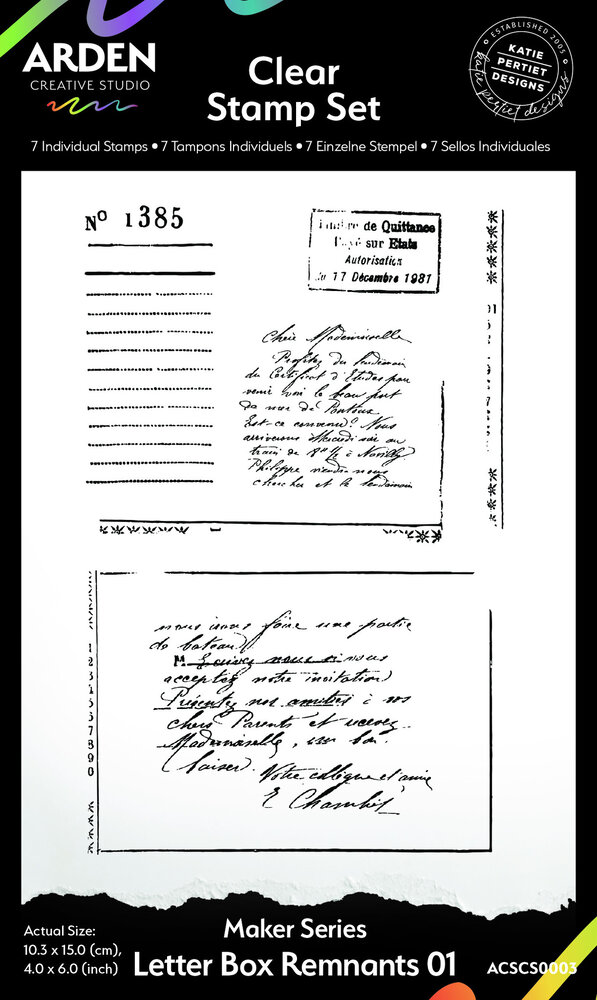 ARDEN
CREATIVE STUDIO
Clear
Stamp Set
ESTABLISHED 2005
KATIE
PERTIET
DESIGNS
katie pertiet designs
7 Individual Stamps • 7 Tampons Individuels • 7 Einzelne Stempel • 7 Sellos Individuales
Nº 1385
de Quittance
sur Etats
Autorisation
17 Décembre 1981
Chère Mademoiselle
Profitez du lendemain
du Certificat d'Etudes pour
venir voir le beau port
de mer de
Est-ce convenu? Nous
arriverons Mercredi soir au
train de à
Philippe viendra nous
chercher et le lendemain
nous irons faire une partie
de bateau
M. Ecrivez nous si vous
acceptez notre invitation
Présentez nos amitiés à vos
chers Parents et recevez
Mademoiselle, un bon
baiser.
Votre collègue et amie
E
Actual Size:
10.3 x 15.0 (cm),
4.0 x 6.0 (inch)
Maker Series
Letter Box Remnants 01
ACSCS0003